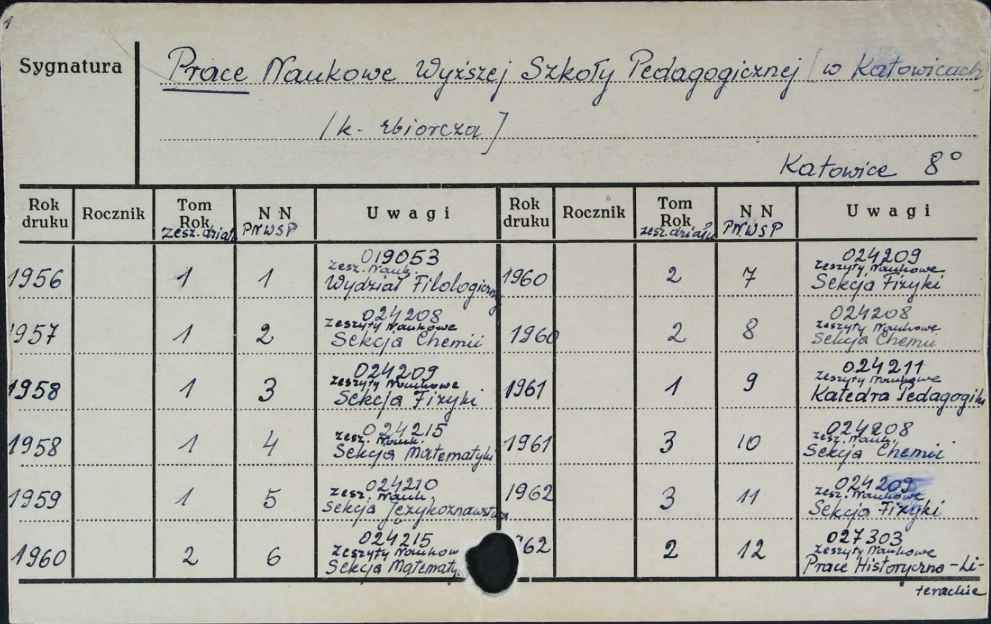 Sygnatura
Prace Naukowe Wyższej Szkoły Pedagogicznej / w Katowicach
/k. zbiorcza]
Katowice 8°
Rok druku Rocznik Tom Rok zesz. działu N N PNWSP Uwagi Rok druku Rocznik Tom Rok zesz. działu N N PNWSP Uwagi
1956 1 1 019053 zesz. Nauk. Wydział Filologiczny
1957 1 2 024208 zeszyty Naukowe Sekcja Chemii
1958 1 3 024209 zeszyty Naukowe Sekcja Fizyki
1958 1 4 024215 zesz. Nauk. Sekcja Matematyki
1959 1 5 024210 zesz. Nauk. Sekcja Językoznawstwa
1960 2 6 024215 zeszyty Naukow Sekcja Matematy
1960 2 7 024209 zeszyty Naukowe Sekcja Fizyki
1960 2 8 024208 zeszyty Naukowe Sekcja Chemii
1961 1 9 024211 zeszyty Naukowe Katedra Pedagogiki
1961 3 10 024208 zesz. Nauk. Sekcja Chemii
1962 3 11 024209 zesz. Naukowe Sekcja Fizyki
62 2 12 027303 zeszyty Naukowe Prace Historyczno-Li-
terackie